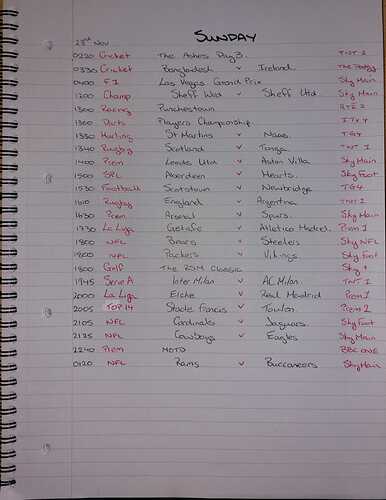 SUNDAY
23rd Nov
0220 Cricket The Ashes Day 3. TNT 2
0330 Cricket Bangladesh v Ireland
0400 F1 Las Vegas Grand Prix Sky Main
1200 Champ Sheff Wed v Sheff Utd. Sky Main
1300 Racing Punchestown RTE 2
1300 Darts Players Championship. ITV 4
1330 Hurling St Martins v Naas. TG4
1340 Rugby Scotland v Tonga TNT 1
1400 Prem Leeds Utd v Aston Villa Sky Main
1500 SPL Aberdeen v Hearts. Sky Foot
1530 Football Scotstown v Newbridge TG4
1610 Rugby England v Argentina TNT 1
1630 Prem Arsenal v Spurs. Sky Main
1730 La Liga Getafe v Atletico Madrid. Prem 1
1800 NFL Bears v Steelers Sky NFL
1800 NFL Packers v Vikings Sky Foot
1800 Golf The RSM Classic Sky +
1945 Serie A Inter Milan v AC Milan. TNT 1
2000 La Liga Elche v Real Madrid Prem 1
2005 TOP 14 Stade Francis v Toulon. Prem 2
2105 NFL Cardinals v Jaguars. Sky Foot
2125 NFL Cowboys v Eagles Sky Main
2240 Prem MOTD BBC ONE
0120 NFL Rams v Buccaneers Sky Main